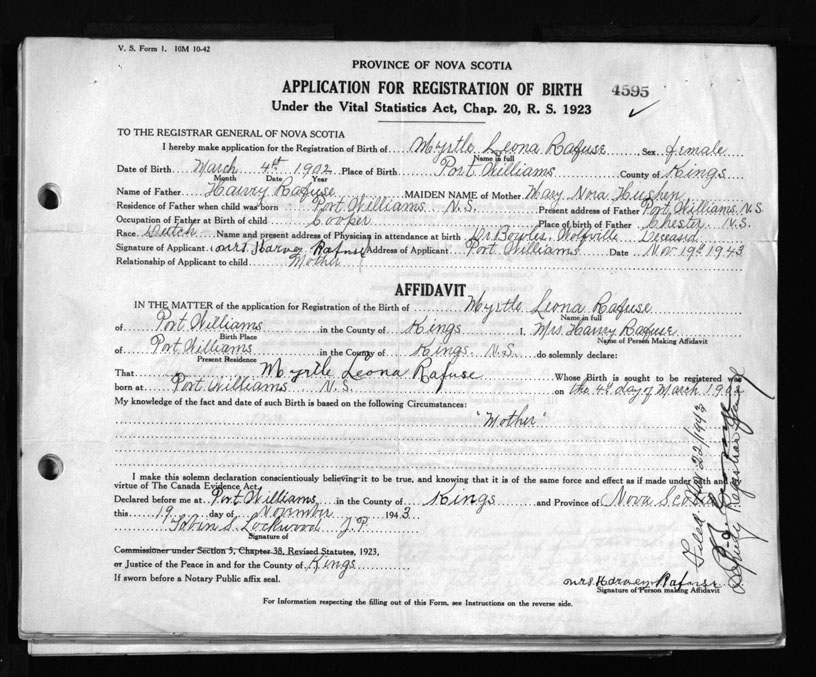 V. S. Form 1. 10M 10-42
PROVINCE OF NOVA SCOTIA
APPLICATION FOR REGISTRATION OF BIRTH 4595
Under the Vital Statistics Act, Chap. 20, R. S. 1923
TO THE REGISTRAR GENERAL OF NOVA SCOTIA
I hereby make application for the Registration of Birth of Myrtle Leona Rafuse Sex female
Name in full
Date of Birth March 4th 1902 Place of Birth Port Williams County of Kings
Month Date Year
Name of Father Harvy Rafuse MAIDEN NAME of Mother Mary Nora Hushen
Residence of Father when child was born Port Williams N.S. Present address of Father Port Williams N.S
Occupation of Father at Birth of child Cooper Place of birth of Father Chester N.S.
Race Dutch Name and present address of Physician in attendance at birth Dr Bowles, Wolfville Deceased
Signature of Applicant mrs. Harvey Rafuse Address of Applicant Port Williams Date Nov 19th 1943
Relationship of Applicant to child Mother
AFFIDAVIT
IN THE MATTER of the application for Registration of the Birth of Myrtle Leona Rafuse
Name in full
of Port Williams in the County of Kings I, Mrs. Harvy Rafuse
Birth Place Name of Person Making Affidavit
of Port Williams in the County of Kings. N.S. do solemnly declare:
Present Residence
That Myrtle Leona Rafuse Whose Birth is sought to be registered was
born at Port Williams N.S. on the 4th day of March 1902
My knowledge of the fact and date of such Birth is based on the following Circumstances:
"Mother"
I make this solemn declaration conscientiously believing it to be true, and knowing that it is of the same force and effect as if made under oath and by
virtue of The Canada Evidence Act.
Declared before me at Port Williams in the County of Kings and Province of Nova Scotia
this 19 day of November 1943
S. Lockwood J.P.
Signature of
Commissioner under Section 5, Chapter 38, Revised Statutes, 1923,
or Justice of the Peace in and for the County of Kings
If sworn before a Notary Public affix seal.
mrs Harvey Rafuse
Signature of Person making Affidavit
For Information respecting the filling out of this Form, see Instructions on the reverse side.
Filed Nov 22/1943
Deputy Registrar